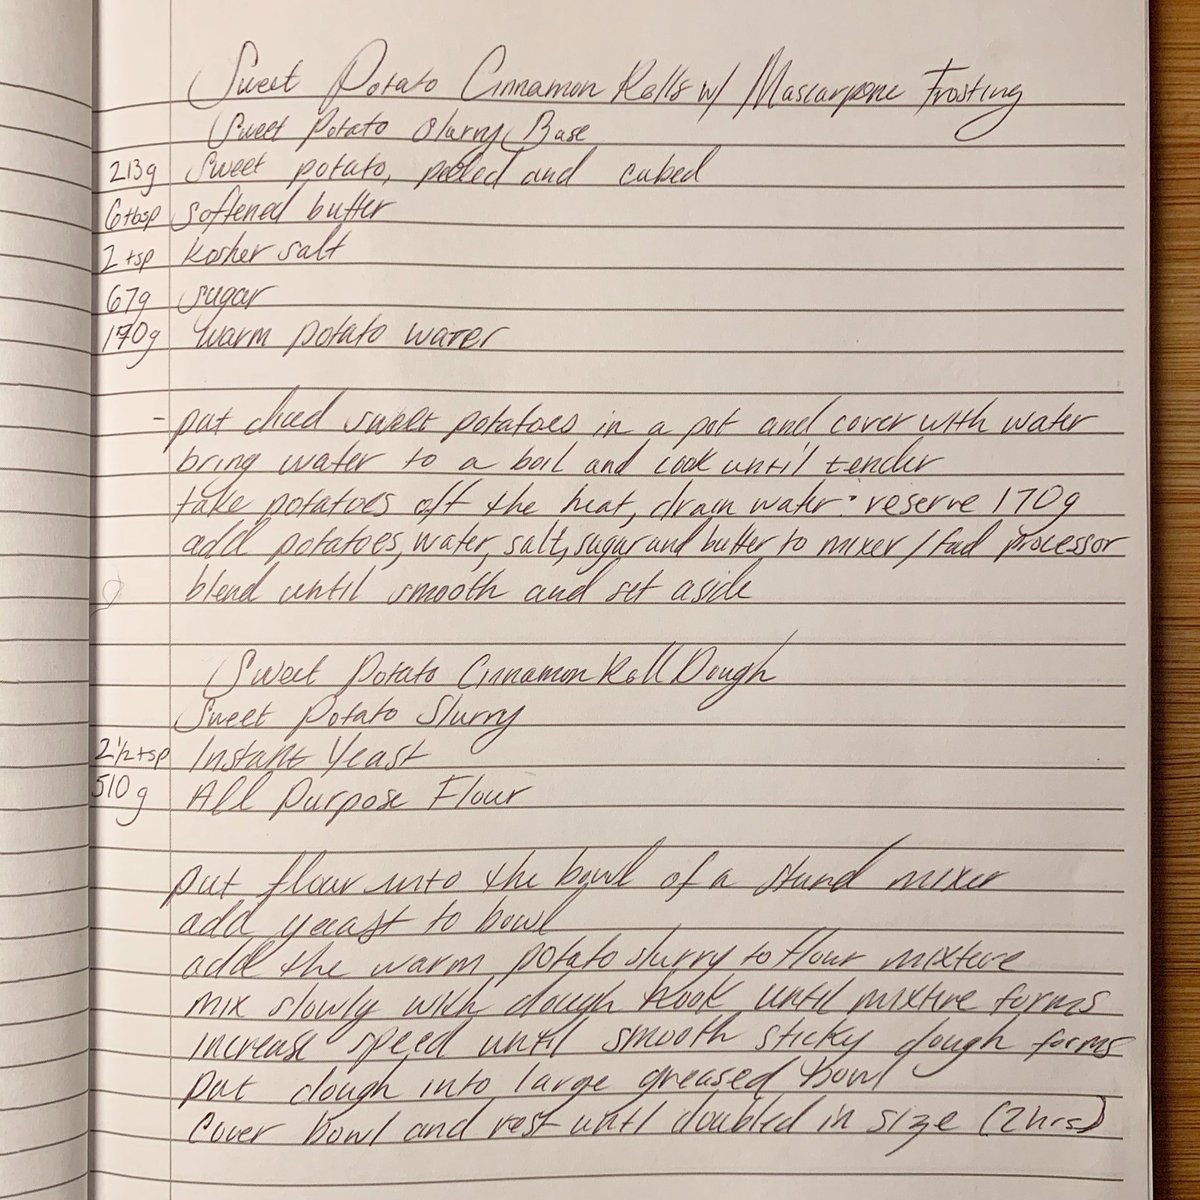 Sweet Potato Cinnamon Rolls w/ Mascarpone Frosting
Sweet Potato Slurry Base
213g sweet potato, peeled and cubed
6tbsp softened butter
2 tsp kosher salt
67g sugar
170g warm potato water
- put diced sweet potatoes in a pot and cover with water
bring water to a boil and cook until tender
take potatoes off the heat, drain water: reserve 170g
add potatoes, water, salt, sugar and butter to mixer/food processor
blend until smooth and set aside
Sweet Potato Cinnamon Roll Dough
Sweet Potato Slurry
2 1/2 tsp Instant Yeast
510g All Purpose Flour
put flour into the bowl of a stand mixer
add yeast to bowl
add the warm potato slurry to flour mixture
mix slowly with dough hook until mixture forms
increase speed until smooth sticky dough forms
put dough into large greased bowl
cover bowl and rest until doubled in size (2hrs)